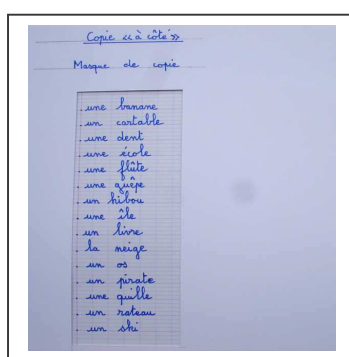 Copie «à côté»
Masque de copie
. une banane
. un cartable
. une dent
. une école
. une flûte
. une guêpe
. un hibou
. une île
. un livre
. la neige
. un os
. un pirate
. une quille
. un rateau
. un ski